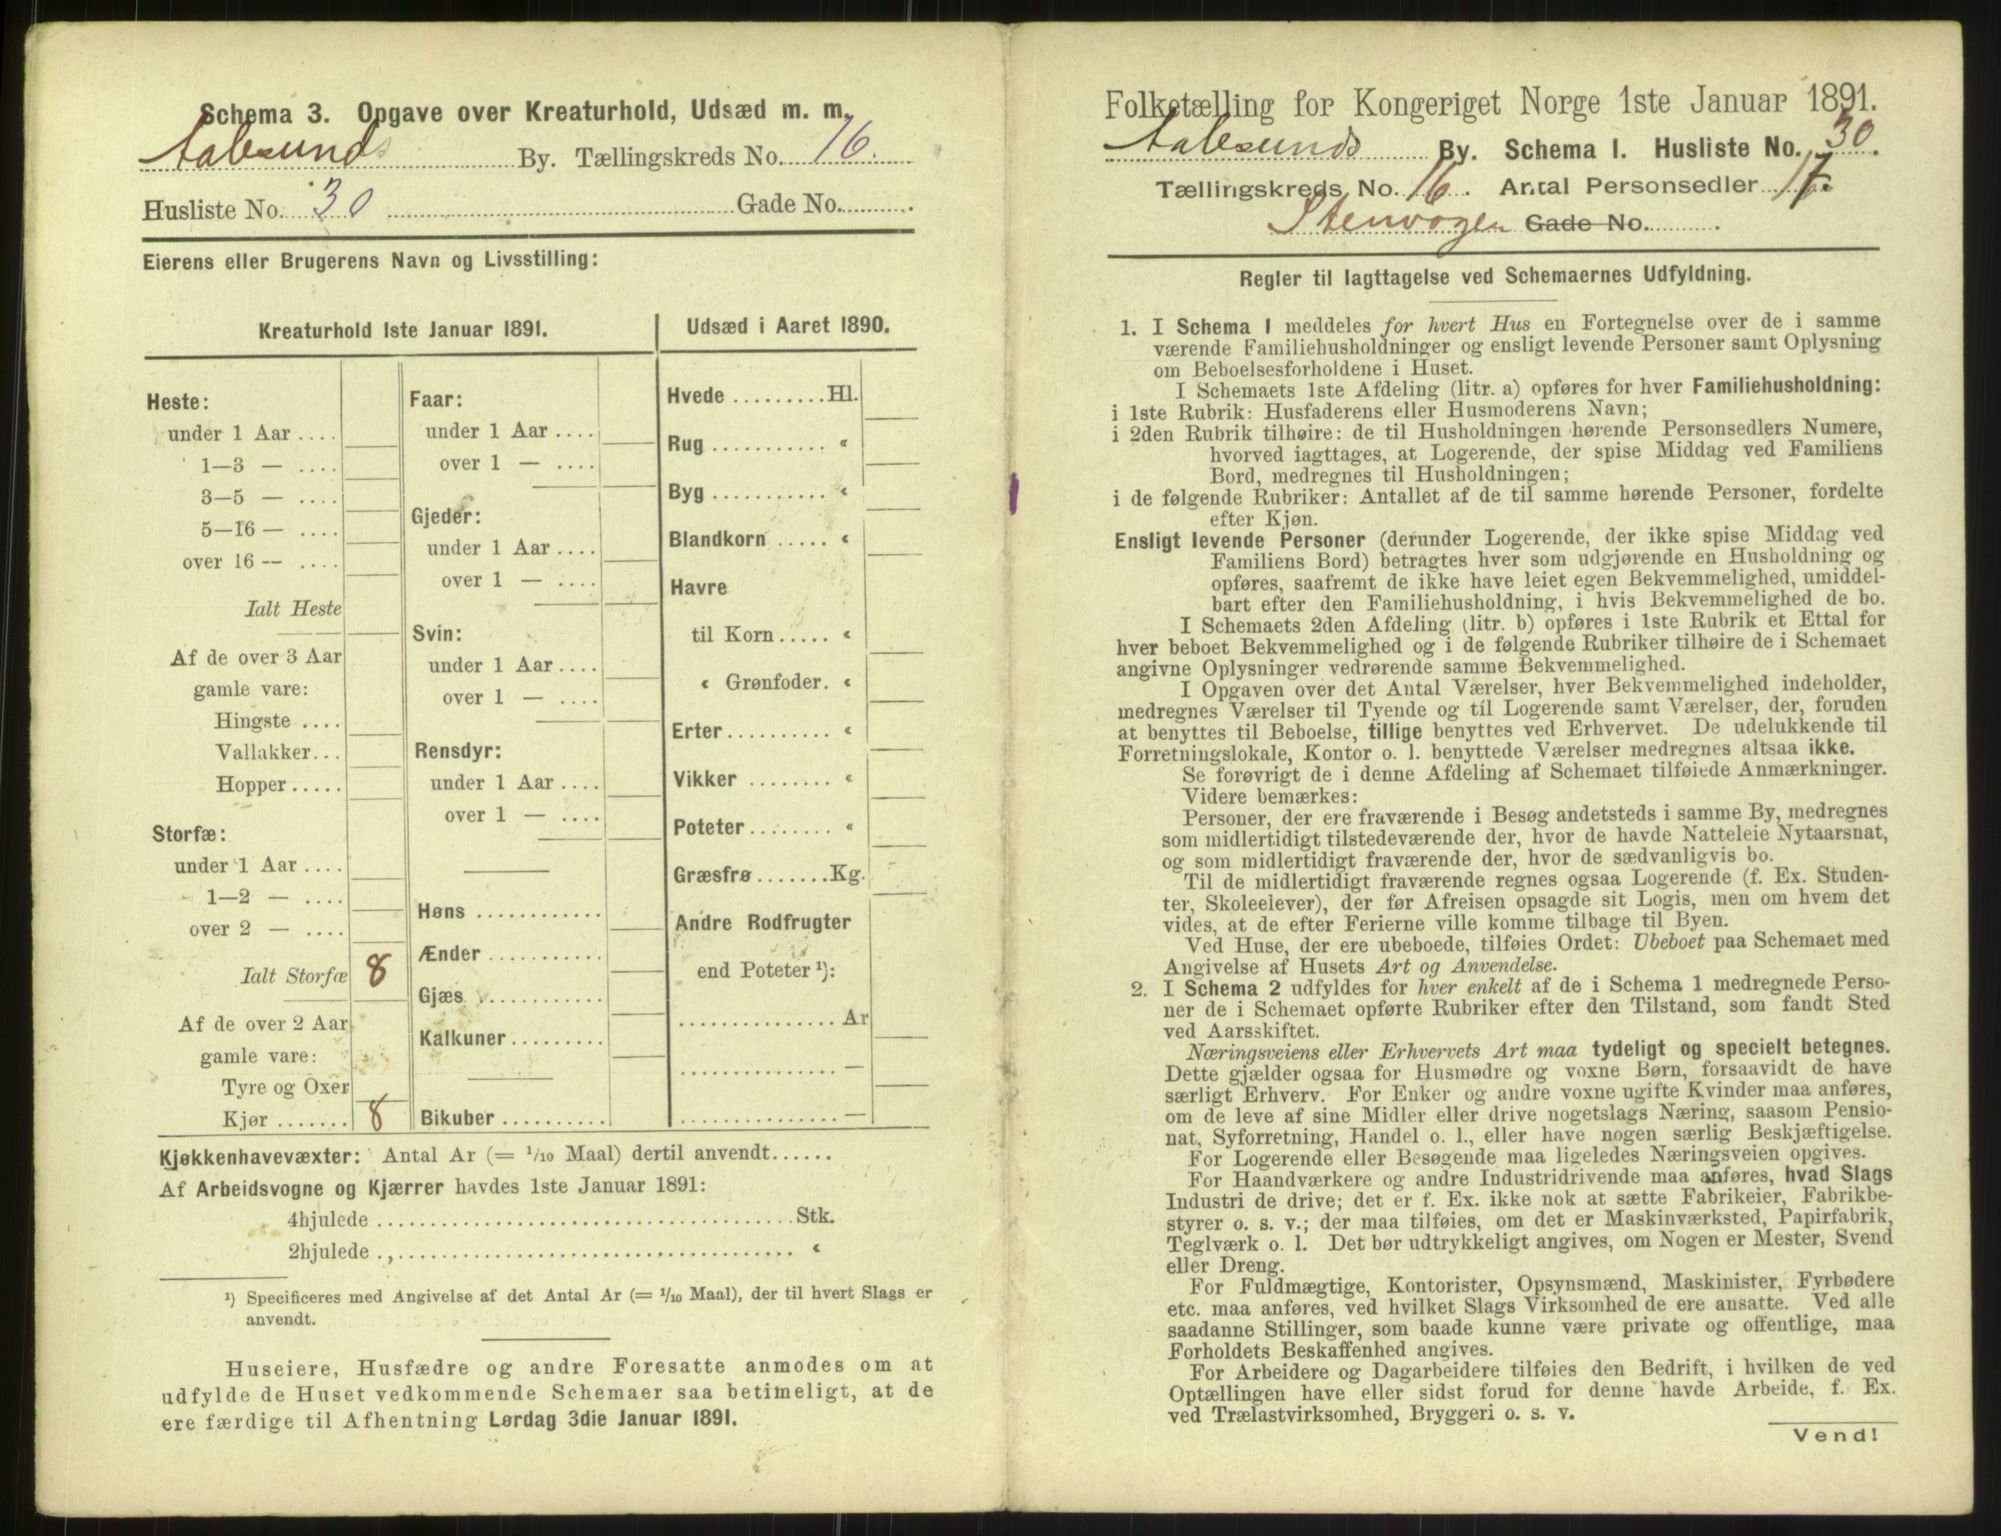 Schema 3. Opgave over Kreaturhold, Udsæd m. m.
Aalesunds By. Tællingskreds No. 16.
Husliste No. 30 Gade No.
Eierens eller Brugerens Navn og Livsstilling:
Kreaturhold 1ste Januar 1891.
Heste:
under 1 Aar ....
1—3 — ....
3—5 — ....
5—16 — ....
over 16 — ....
Ialt Heste
Af de over 3 Aar
gamle vare:
Hingste ....
Vallakker...
Hopper.....
Storfæ:
under 1 Aar ....
1—2 — ....
over 2 — ....
Ialt Storfæ 8
Af de over 2 Aar
gamle vare:
Tyre og Oxer
Kjør ....... 8
Faar:
under 1 Aar ....
over 1 — ....
Gjeder:
under 1 Aar ....
over 1 — ....
Svin:
under 1 Aar ....
over 1 — ....
Rensdyr:
under 1 Aar ....
over 1 — ....
Høns ............
Ænder ...........
Gjæs ............
Kalkuner.........
Bikuber ..........
Udsæd i Aaret 1890.
Hvede .........Hl.
Rug ........... «
Byg ........... «
Blandkorn ..... «
Havre
til Korn ..... «
« Grønfoder. «
Erter.......... «
Vikker ........ «
Poteter........ «
Græsfrø .......Kg.
Andre Rodfrugter
end Poteter ¹):
............... Ar
............... —
............... —
Kjøkkenhavevæxter: Antal Ar (= 1/10 Maal) dertil anvendt......
Af Arbeidsvogne og Kjærrer havdes 1ste Januar 1891:
4hjulede ........................................ Stk.
2hjulede ........................................ «
¹) Specificeres med Angivelse af det Antal Ar (= 1/10 Maal), der til hvert Slags er
anvendt.
Huseiere, Husfædre og andre Foresatte anmodes om at
udfylde de Huset vedkommende Schemaer saa betimeligt, at de
ere færdige til Afhentning Lørdag 3die Januar 1891.
Folketælling for Kongeriget Norge 1ste Januar 1891.
Aalesunds By. Schema 1. Husliste No. 30.
Tællingskreds No. 16. Antal Personsedler 17.
Stenvogen Gade No. .
Regler til Iagttagelse ved Schemaernes Udfyldning.
1. I Schema 1 meddeles for hvert Hus en Fortegnelse over de i samme
værende Familiehusholdninger og ensligt levende Personer samt Oplysning
om Beboelsesforholdene i Huset.
I Schemaets 1ste Afdeling (litr. a) opføres for hver Familiehusholdning:
i 1ste Rubrik: Husfaderens eller Husmoderens Navn;
i 2den Rubrik tilhøire: de til Husholdningen hørende Personsedlers Numere,
hvorved iagttages, at Logerende, der spise Middag ved Familiens
Bord, medregnes til Husholdningen;
i de følgende Rubriker: Antallet af de til samme hørende Personer, fordelte
efter Kjøn.
Ensligt levende Personer (derunder Logerende, der ikke spise Middag ved
Familiens Bord) betragtes hver som udgjørende en Husholdning og
opføres, saafremt de ikke have leiet egen Bekvemmelighed, umiddel-
bart efter den Familiehusholdning, i hvis Bekvemmelighed de bo.
I Schemaets 2den Afdeling (litr. b) opføres i 1ste Rubrik et Ettal for
hver beboet Bekvemmelighed og i de følgende Rubriker tilhøire de i Schemaet
angivne Oplysninger vedrørende samme Bekvemmelighed.
I Opgaven over det Antal Værelser, hver Bekvemmelighed indeholder,
medregnes Værelser til Tyende og til Logerende samt Værelser, der, foruden
at benyttes til Beboelse, tillige benyttes ved Erhvervet. De udelukkende til
Forretningslokale, Kontor o. l. benyttede Værelser medregnes altsaa ikke.
Se forøvrigt de i denne Afdeling af Schemaet tilføiede Anmærkninger.
Videre bemærkes:
Personer, der ere fraværende i Besøg andetsteds i samme By, medregnes
som midlertidigt tilstedeværende der, hvor de havde Natteleie Nytaarsnat,
og som midlertidigt fraværende der, hvor de sædvanligvis bo.
Til de midlertidigt fraværende regnes ogsaa Logerende (f. Ex. Studen-
ter, Skoleelever), der før Afreisen opsagde sit Logis, men om hvem det
vides, at de efter Ferierne ville komme tilbage til Byen.
Ved Huse, der ere ubeboede, tilføies Ordet: Ubeboet paa Schemaet med
Angivelse af Husets Art og Anvendelse.
2. I Schema 2 udfyldes for hver enkelt af de i Schema 1 medregnede Perso-
ner de i Schemaet opførte Rubriker efter den Tilstand, som fandt Sted
ved Aarsskiftet.
Næringsveiens eller Erhvervets Art maa tydeligt og specielt betegnes.
Dette gjælder ogsaa for Husmødre og voxne Børn, forsaavidt de have
særligt Erhverv. For Enker og andre voxne ugifte Kvinder maa anføres,
om de leve af sine Midler eller drive nogetslags Næring, saasom Pensio-
nat, Syforretning, Handel o. l., eller have nogen særlig Beskjæftigelse.
For Logerende eller Besøgende maa ligeledes Næringsveien opgives.
For Haandværkere og andre Industridrivende maa anføres, hvad Slags
Industri de drive; det er f. Ex. ikke nok at sætte Fabrikeier, Fabrikbe-
styrer o. s. v.; der maa tilføies, om det er Maskinværksted, Papirfabrik,
Teglværk o. l. Det bør udtrykkeligt angives, om Nogen er Mester, Svend
eller Dreng.
For Fuldmægtige, Kontorister, Opsynsmænd, Maskinister, Fyrbødere
etc. maa anføres, ved hvilket Slags Virksomhed de ere ansatte. Ved alle
saadanne Stillinger, som baade kunne være private og offentlige, maa
Forholdets Beskaffenhed angives.
For Arbeidere og Dagarbeidere tilføies den Bedrift, i hvilken de ved
Optællingen have eller sidst forud for denne havde Arbeide, f. Ex.
ved Trælastvirksomhed, Bryggeri o. s. v.
Vend!